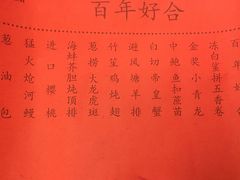 百年好合
冻白鲨拼五香卷
金奖小青龙
中鲍鱼扣莲菇
白切帝皇蟹
避风塘羊排
竹笙鸡炖翅
葱捞大龙虎斑
海蚌芥胆炖顶排
进口樱桃
猛火炝河鳗
葱油包